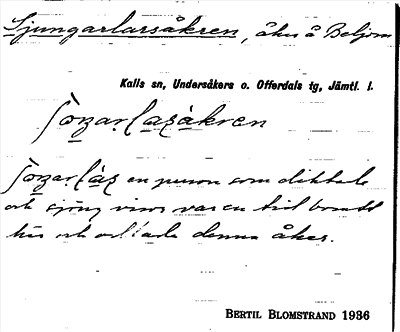 Sjungarlarsåkren, åker å Beljom
Kalls sn, Undersåkers o. Offerdals tg, Jämtl. l.
en person som diktade
och sjöng visor var en tid bosatt
här och odlade denna åker.
BERTIL BLOMSTRAND 1936